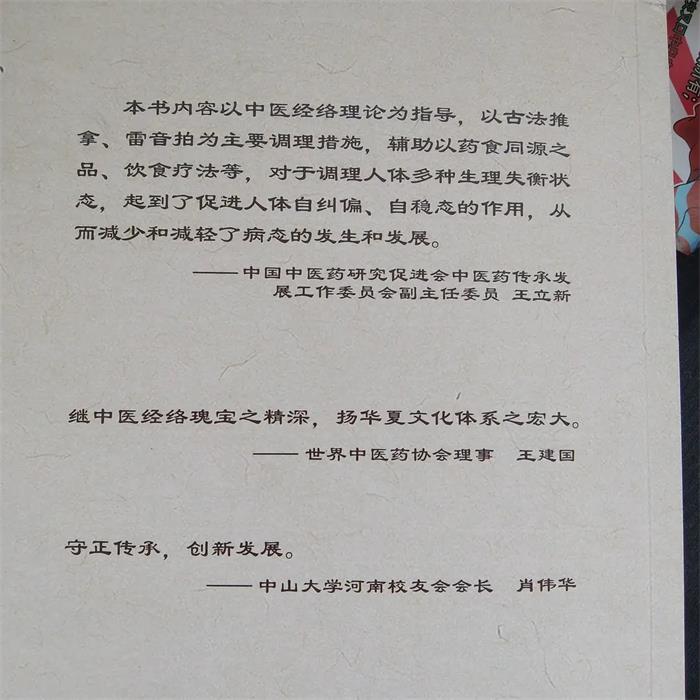 本书内容以中医经络理论为指导，以古法推
拿、雷音拍为主要调理措施，辅助以药食同源之
品、饮食疗法等，对于调理人体多种生理失衡状
态，起到了促进人体自纠偏、自稳态的作用，从
而减少和减轻了病态的发生和发展。
——中国中医药研究促进会中医药传承发
展工作委员会副主任委员 王立新
继中医经络瑰宝之精深，扬华夏文化体系之宏大。
——世界中医药协会理事 王建国
守正传承，创新发展。
——中山大学河南校友会会长 肖伟华